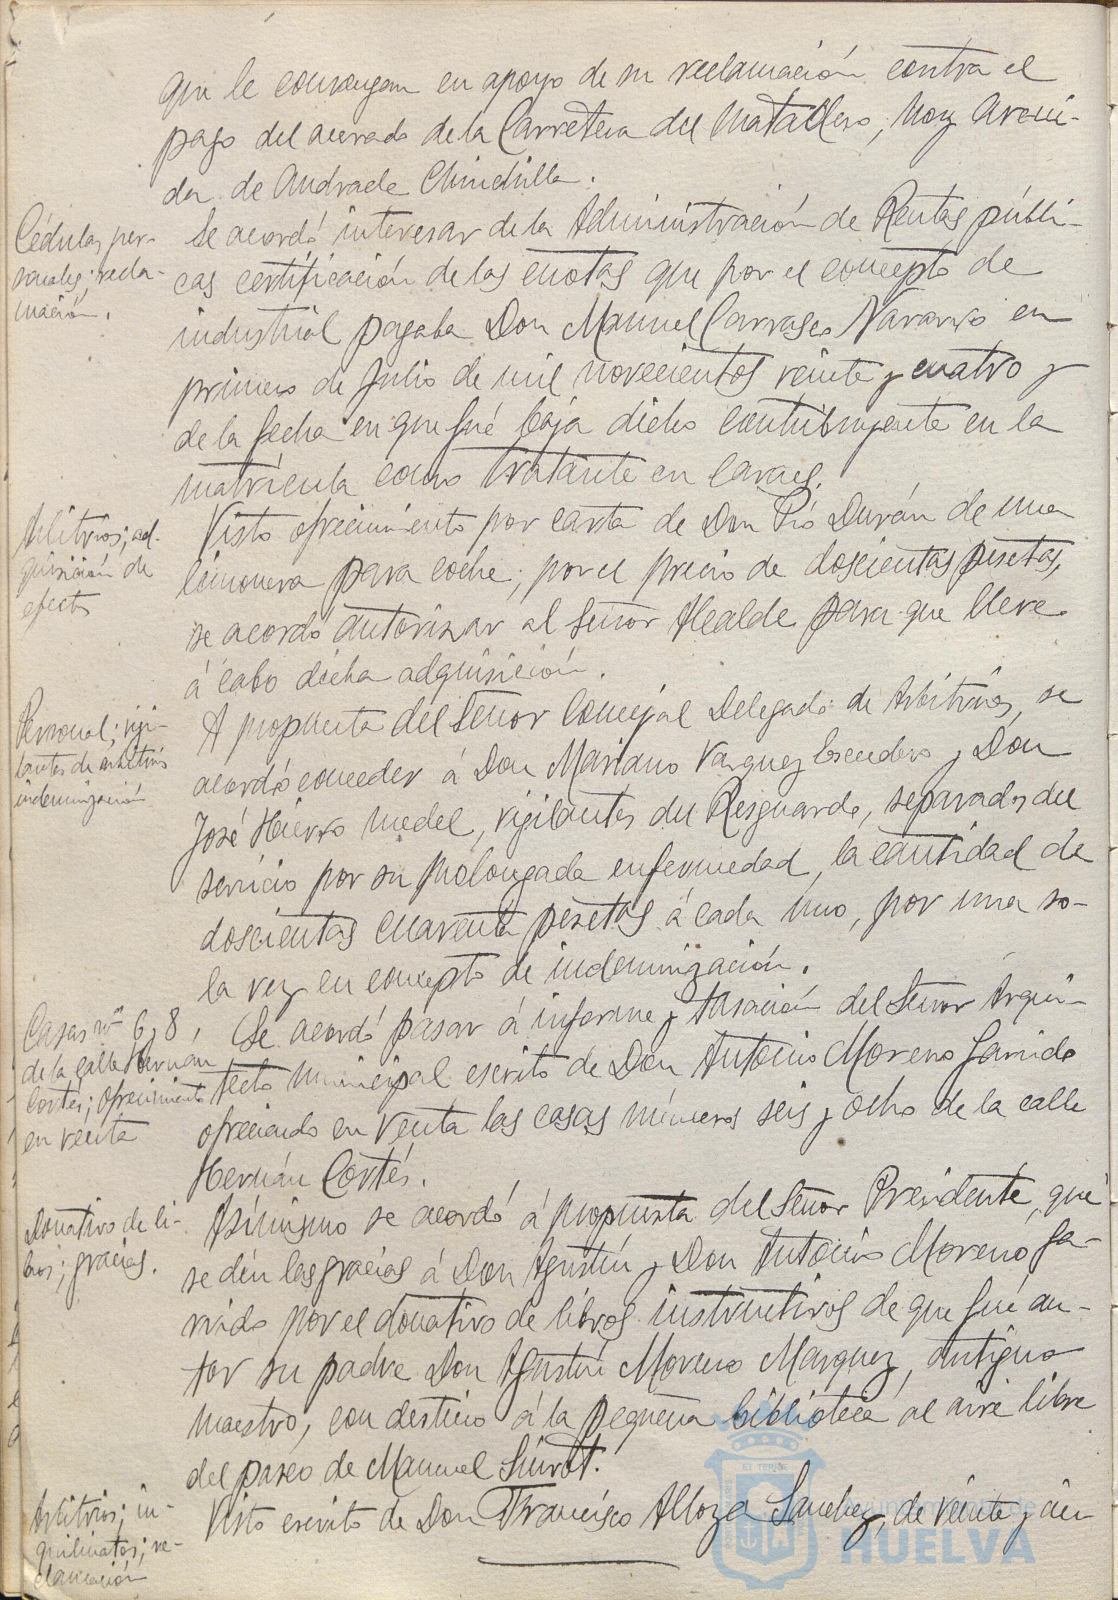 que le convengan en apoyo de su reclamación contra el
pago del acerado de la Carretera del Matadero, hoy Aveni-
da de Andrade Chinchilla.
Cédulas per-
sonales; recla-
mación.
Se acordó interesar de la Administración de Rentas públi-
cas certificación de las cuotas que por el concepto de
industrial pagaba Don Manuel Carrasco Navarro en
primero de Julio de mil novecientos veinte y cuatro y
de la fecha en que fué baja dicho contribuyente en la
matrícula como tratante en carnes.
Arbitrios; ad-
quisición de
efecto
Visto ofrecimiento por carta de Don Pío Durán de una
limonera para coche, por el precio de doscientas pesetas,
se acordó autorizar al Señor Alcalde para que lleve
á cabo dicha adquisición.
Personal; vigi-
lantes de arbitrios
indemnización
A propuesta del Señor Concejal Delegado de Arbitrios, se
acordó conceder á Don Mariano Vazquez Escudero y Don
José Hierro Medel, vigilantes del Resguardo, separados del
servicio por su prolongada enfermedad, la cantidad de
doscientas cuarenta pesetas á cada uno, por una so-
la vez en concepto de indemnización.
Casas nos 6 y 8,
de la calle Hernan
Cortés; ofrecimiento
en venta
Se acordó pasar á informe y tasación del Señor Arqui-
tecto Municipal escrito de Don Antonio Moreno Garrido
ofreciendo en venta las casas números seis y ocho de la calle
Hernán Cortés.
Donativo de li-
bros; gracias.
Asímismo se acordó á propuesta del Señor Presidente, que
se dén las gracias á Don Agustín y Don Antonio Moreno Ga-
rrido por el donativo de libros instructivos de que fué au-
tor su padre Don Agustín Moreno Marquez, antiguo
maestro, con destino á la pequeña biblioteca al aire libre
del paseo de Manuel Siurot.
Arbitrios; in-
quilinatos; re-
clamación
Visto escrito de Don Francisco Alloza Sanchez, de veinte y cin-
Ayuntamiento de
HUELVA